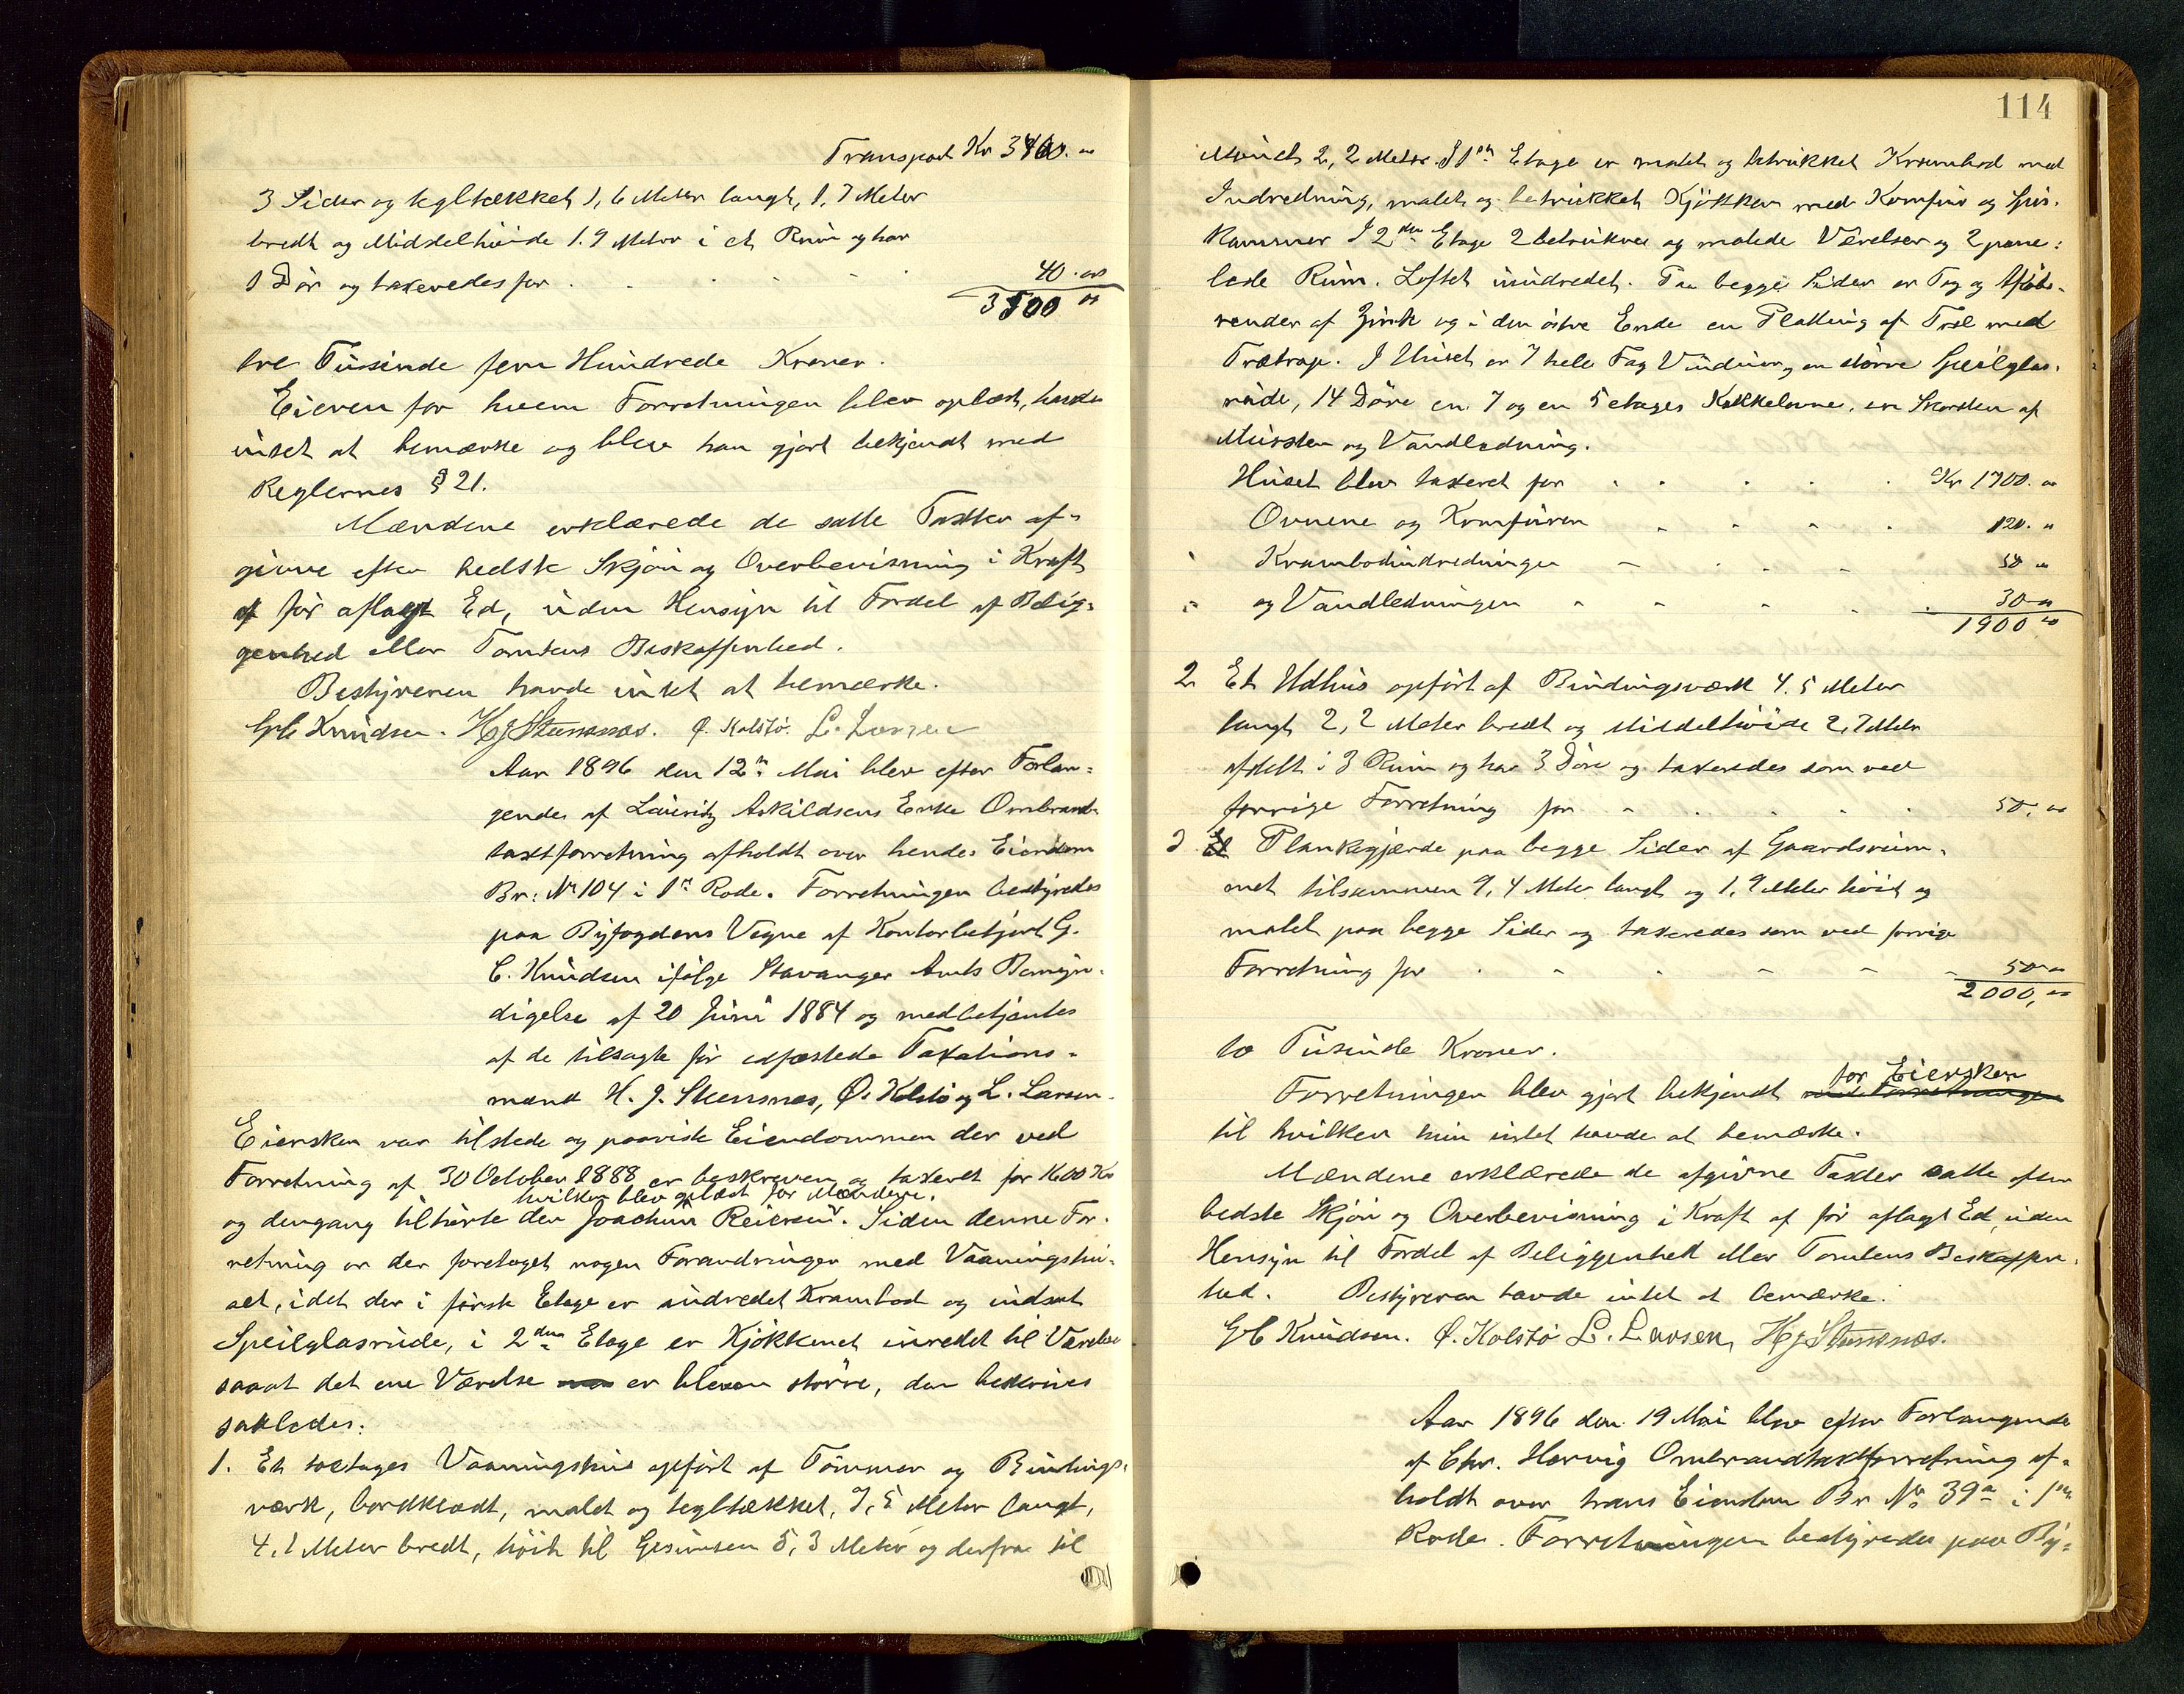 Transport Kr 3460.00
3 Sider og tegltækket 1,6 Meter langt, 1,7 Meter
bredt og Middelhöide 1.9 Meter i et Rum og har
1 Dör og taxeredes for . . . . . 40.00
3500 00
tre Tusinde fem Hundrede Kroner.
Eieren for hvem Forretningen blev oplæst, havde
intet at bemærke og blev han gjort bekjendt med
Reglernes § 21.
Mændene erklærede de satte Taxter af-
givne efter bedste Skjön og Overbevisning i Kraft
af för aflagt Ed, uden Hensyn til Fordel af Belig-
genhed eller Tomtens Beskaffenhed.
Bestyreren havde intet at bemærke.
GC Knudsen. H J Stensnæs. Ø. Kolstö. L. Larsen
Aar 1896 den 12te Mai blev efter Forlan-
gende af Lauritz Askildsens Enke Ombrand-
taxtforretning afholdt over hendes Eiendom
Br: No 104 i 1ste Rode. Forretningen bestyredes
paa Byfogdens Vegne af Kontorbetjent G.
C. Knudsen ifölge Stavanger Amts Bemyn-
digelse af 20 Juni 1884 og medbetjentes
af de tilsagte för edfæstede Taxations-
mænd H. J. Stensnæs, Ø. Kolstö og L. Larsen.
Eiersken var tilstede og paaviste Eiendommen der ved
Forretning af 30 October 1888 er beskreven og taxeret for 1600 Kr
hvilken blev oplæst for Mændene.
og dengang tilhörte den Joachim Reiersen. Siden denne For-
retning er der foretaget nogen Forandringer med Vaaningshu-
set, idet der i förste Etage er indredet Krambod og indsat
Speilglasrude, i 2den Etage er Kjökkenet inredet til Værelse
samt det ene Værelse er bleven större, den beskrives
saaledes:
1. Et toetages Vaaningshus opfört af Tömmer og Bindings-
værk, bordklædt, malet og tegltækket, 7,5 Meter langt,
4,1 Meter bredt, höit til Gesimsen 5,3 Meter og derfra til
114
Mönet 2,2 Meter. I 1ste Etage er malet og betrukket Krambod med
Indredning, malet og betrukket Kjökken med Komfur og Spis-
kammer I 2den Etage 2 betrukne og malede Værelser og 2 pane-
lede Rum. Loftet uindredet. Paa begge Sider er Tag og Aflöbs-
render af Zink og i den östre Ende en Platting af Træ med
Trætrap. I Huset er 7 hele Fag Vinduer, en större Speilglas-
rude, 14 Döre en 7 og en 5 etages Kakkelovne, en Skorsten af
Mursten og Vandledning.
Huset blev taxeret for . . . . . Kr 1700.00
Ovnene og Komfuren . . . . 120.00
" Krambodindredningen - . . . 50 00
" og Vandledningen - - - - 30 00
1900 00
2 Et Udhus opfört af Bindingsværk 4.5 Meter
langt 2,2 Meter bredt og Middelhöide 2,7 Meter
afdelt i 3 Rum og har 3 Döre og taxeredes som ved
forrige Forretning for - . . . . 50,00
3 Et Plankegjærde paa begge Sider af Gaardsrum-
met tilsammen 9,4 Meter langt og 1,9 Meter höit og
malet paa begge Sider og taxeredes som ved forrige
Forretning for . - . - - - 50 00
2000,00
to Tusinde Kroner.
for Eiersken
Forretningen blev gjort bekjendt med Forretningen
til hvilken hun intet havde at bemærke.
Mændene erklærede de afgivne Taxter satte efter
bedste Skjön og Overbevisning i Kraft af för aflagt Ed, uden
Hensyn til Fordel af Beliggenhed eller Tomtens Beskaffen-
hed. Bestyreren havde intet at bemærke.
GC Knudsen. Ø. Kolstö L. Larsen, H J Stensnæs.
Aar 1896 den 19 Mai blev efter Forlangende
af Chr. Hervig Ombrandtaxtforretning af-
holdt over hans Eiendom Br No 39a i 1ste
Rode. Forretningen bestyredes paa By-